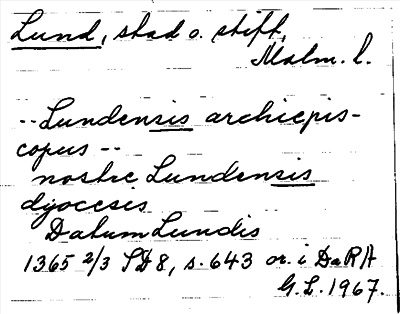 Lund, stad o. stift,
Malm. l.
-- Lundensis archiepis-
copus --
nostre Lundensis
dyocesis
Datum Lundis
1365 2/3 SD8, s. 643 or. i DaRA
G. L. 1967.